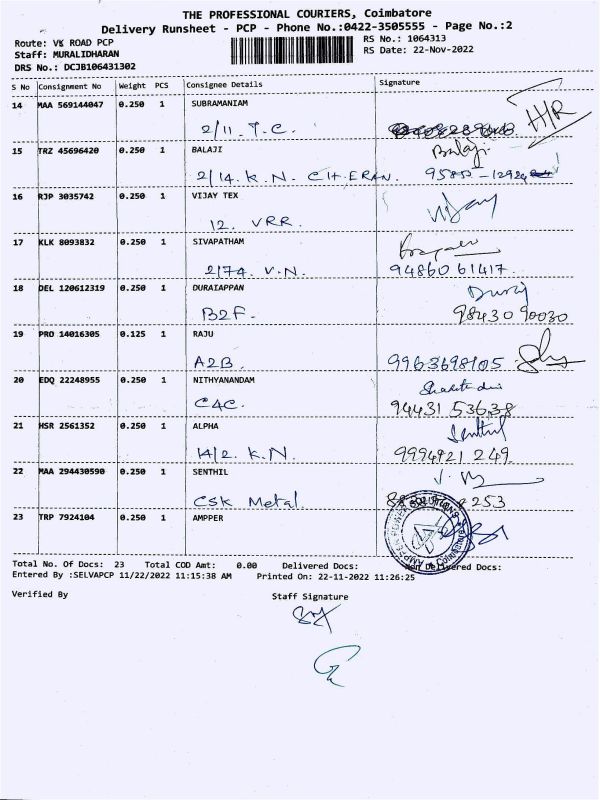 THE PROFESSIONAL COURIERS, Coimbatore
Delivery Runsheet - PCP - Phone No.:0422-3505555 - Page No.:2
Route: VK ROAD PCP
RS No.: 1064313
Staff: MURALIDHARAN
RS Date: 22-Nov-2022
DRS No.: DCJB106431302
S No Consignment No Weight PCS Consignee Details Signature
14 MAA 569144047 0.250 1 SUBRAMANIAM
2/11. T.C. H/R
15 TRZ 45696420 0.250 1 BALAJI Balaji
2/14. K.N. CHERAN. 95855-12924
16 RJP 3035742 0.250 1 VIJAY TEX Vijay
12. VRR.
17 KLK 8093832 0.250 1 SIVAPATHAM
2/74. V.N. 94860 61417.
18 DEL 120612319 0.250 1 DURAIAPPAN Durai
B2F. 98430 90030
19 PRO 14016305 0.125 1 RAJU
A2B. 9963698105
20 EDQ 22248955 0.250 1 NITHYANANDAM
C4C. 94431 53638
21 HSR 2561352 0.250 1 ALPHA Senthil
14/2. K.N. 9994921 249.
22 MAA 294430590 0.250 1 SENTHIL
CSK Metal. 253
23 TRP 7924104 0.250 1 AMPPER
AMPPER POWER SOLUTIONS
Coimbatore
Total No. Of Docs: 23 Total COD Amt: 0.00 Delivered Docs: Non Delivered Docs:
Entered By :SELVAPCP 11/22/2022 11:15:38 AM Printed On: 22-11-2022 11:26:25
Verified By Staff Signature